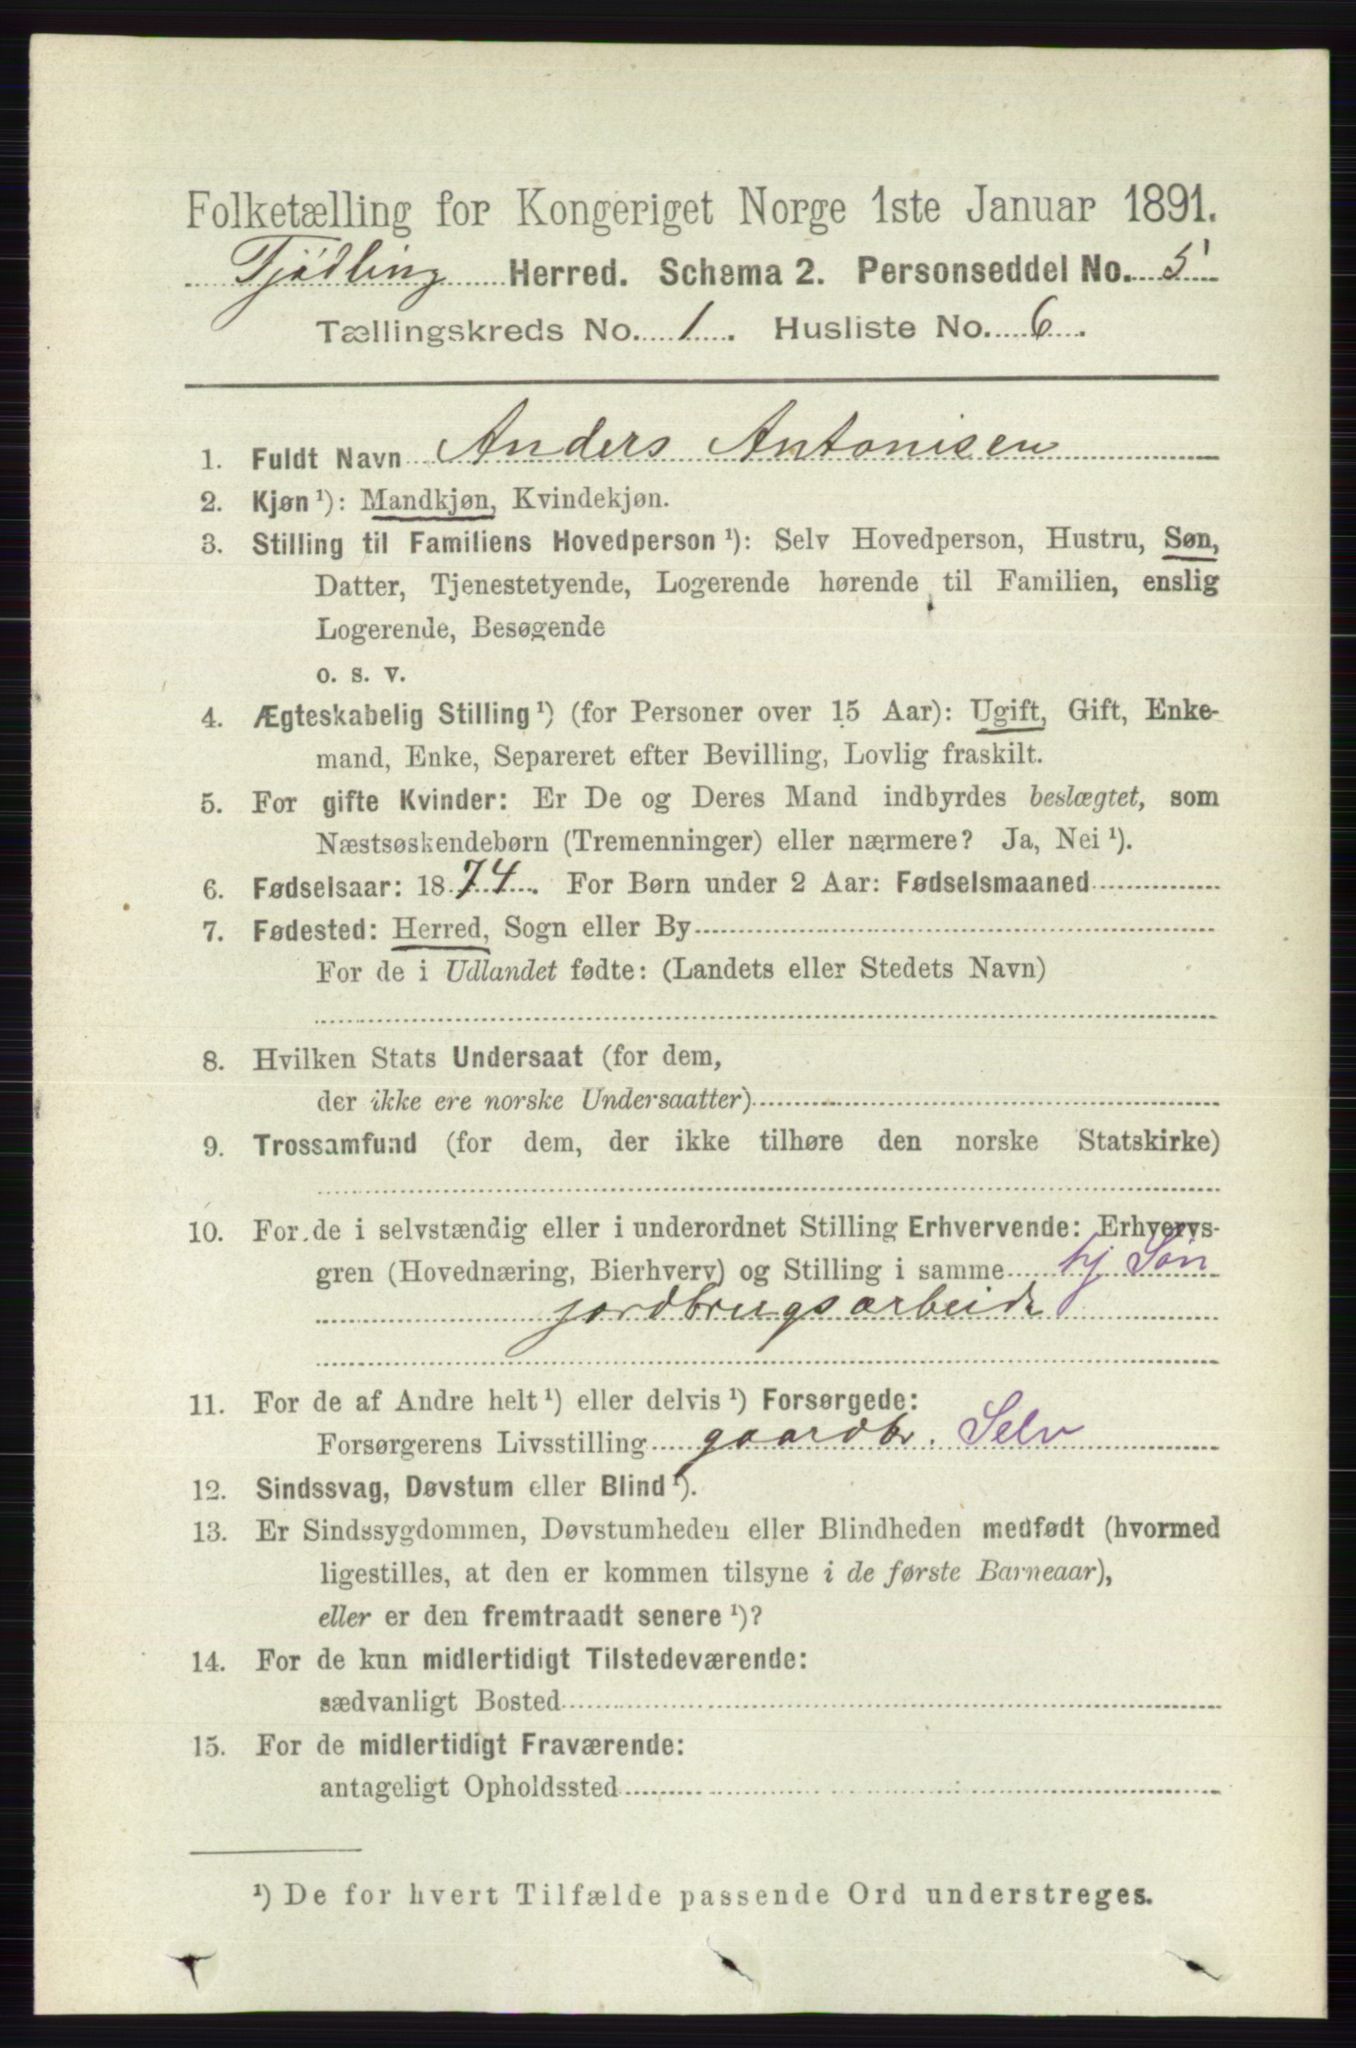 Folketælling for Kongeriget Norge 1ste Januar 1891.
Tjødling Herred. Schema 2. Personseddel No. 5
Tællingskreds No. 1. Husliste No. 6.
1. Fuldt Navn Anders Antonisen
2. Kjøn ¹): Mandkjøn, Kvindekjøn.
3. Stilling til Familiens Hovedperson ¹): Selv Hovedperson, Hustru, Søn,
Datter, Tjenestetyende, Logerende hørende til Familien, enslig
Logerende, Besøgende
o. s. v.
4. Ægteskabelig Stilling ¹) (for Personer over 15 Aar): Ugift, Gift, Enke-
mand, Enke, Separeret efter Bevilling, Lovlig fraskilt.
5. For gifte Kvinder: Er De og Deres Mand indbyrdes beslægtet, som
Næstsøskendebørn (Tremenninger) eller nærmere? Ja, Nei ¹).
6. Fødselsaar: 1874. For Børn under 2 Aar: Fødselsmaaned
7. Fødested: Herred, Sogn eller By
For de i Udlandet fødte: (Landets eller Stedets Navn)
8. Hvilken Stats Undersaat (for dem,
der ikke ere norske Undersaatter)
9. Trossamfund (for dem, der ikke tilhøre den norske Statskirke)
10. For de i selvstændig eller i underordnet Stilling Erhvervende: Erhvervs-
gren (Hovednæring, Bierhverv) og Stilling i samme hj Søn
jordbrugsarbeide
11. For de af Andre helt ¹) eller delvis ¹) Forsørgede:
Forsørgerens Livsstilling gaardbr. Selv
12. Sindssvag, Døvstum eller Blind ¹).
13. Er Sindssygdommen, Døvstumheden eller Blindheden medfødt (hvormed
ligestilles, at den er kommen tilsyne i de første Barneaar),
eller er den fremtraadt senere ¹)?
14. For de kun midlertidigt Tilstedeværende:
sædvanligt Bosted
15. For de midlertidigt Fraværende:
antageligt Opholdssted
¹) De for hvert Tilfælde passende Ord understreges.